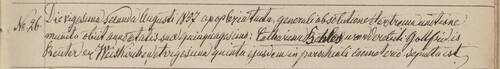 No 26. Die vigesima secunda Augusti 1837 apoplexia tacta, generali absolutione et extrema unctione
munita obiit anno aetatis suae quinquagesimo: Catharina Uxor Godfridi
ex et vigesima quinta ejusdem in parochiali coemeterio sepulta est.